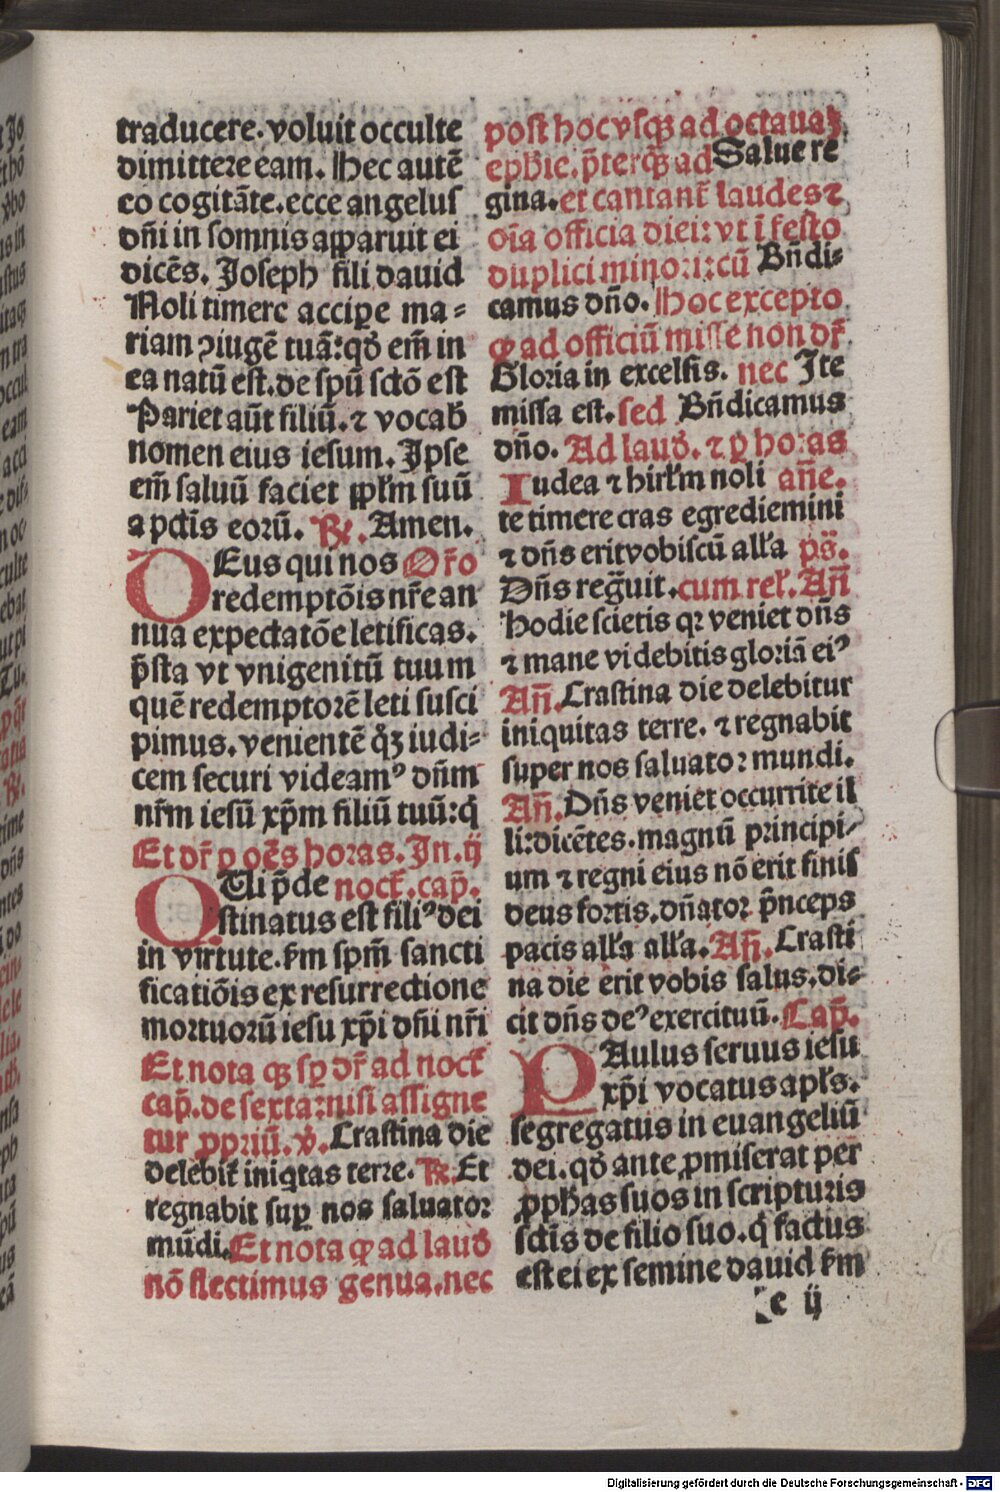 traducere. voluit occulte
dimittere eam. Hec autē
eo cogitāte. ecce angelus
dn̄i in somnis apparuit ei
dicēs. Joseph fili dauid
Noli timere accipe ma-
riam ꝯiugē tuā: qđ em̄ in
ea natū est. de spū sctō est
Pariet aūt filiū. ⁊ vocab
nomen eius iesum. Ipse
em̄ saluū faciet ppl̄m suū
a pctīs eorū. ℟. Amen.
DEus qui nos Or̄o
redemptōis nr̄e an
nua expectatōe letificas.
p̄sta vt vnigenitū tuum
quē redemptorē leti susci
pimus. venientē qꝫ iudi-
cem securi videamꝰ dn̄m
nr̄m iesū xp̄m filiū tuū: q̄
Et dr̄ ꝑ oēs horas. In. ij
QUi p̄de noct̄. cap̄.
stinatus est filiꝰ dei
in virtute. ẜm spm̄ sancti
ficatiōis ex resurrectione
mortuorū iesu xp̄i dn̄i nr̄i
Et nota qꝫ sꝑ dr̄ ad noct̄
cap̄. de sexta: nisi assigne
tur ꝓpriū. ℣. Crastina die
delebit̄ iniqtas terre. ℟. Et
regnabit suꝑ nos saluator
mūdi. Et nota ꝙ ad laud
nō flectimus genua. nec
post hoc vsqꝫ ad octauaꝫ
eph̄ie. p̄terqꝫ ad Salue re
gina. et cantant̄ laudes ⁊
oīa officia diei: vt ī festo
duplici minori: cū Bn̄di-
camus dn̄o. Hoc excepto
ꝙ ad officiū misse non dr̄
Gloria in excelsis. nec Ite
missa est. sed Bn̄dicamus
dn̄o. Ad laud. ⁊ ꝑ horas
Iudea ⁊ hirl̄m noli an̄e.
te timere cras egrediemini
⁊ dn̄s erit vobiscū all̄a ps̄.
Dn̄s reḡuit. cum rel̄. An̄
Hodie scietis qꝛ veniet dn̄s
⁊ mane videbitis gloriā eiꝰ
An̄. Crastina die delebitur
iniquitas terre. ⁊ regnabit
super nos saluator mundi.
An̄. Dn̄s veniet occurrite il
li: dicētes. magnū principi-
um ⁊ regni eius nō erit finis
deus fortis. dn̄ator p̄nceps
pacis all̄a all̄a. An̄. Crasti
na die erit vobis salus. di-
cit dn̄s deꝰ exercituū. Cap̄.
PAulus seruus iesu
xp̄i vocatus apl̄s.
segregatus in euangeliū
dei. qđ ante ꝓmiserat per
ꝓph̄as suos in scripturis
sctīs de filio suo. q̄ factus
est ei ex semine dauid ẜm
e ij
Digitalisierung gefördert durch die Deutsche Forschungsgemeinschaft - DFG